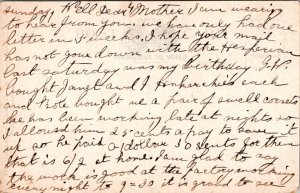 Sunday, Well dear Mother I am wearing
to hear from you. we have only had one
letter in 5 weeks, I hope your mail
has not gone down with the Hesperian
last saturday was my Birthday
bought Janet and I Hankerchies each
and Note bought me a pair of swell corsets
she has been working late at nights so
I allowed him 25 cents a pay to save it
up so he paid 1 dollar 50 cents for them
that is 6/2 at home. I am glad to say
the work is good at the factory working
every night to 9=30 it is grand to see